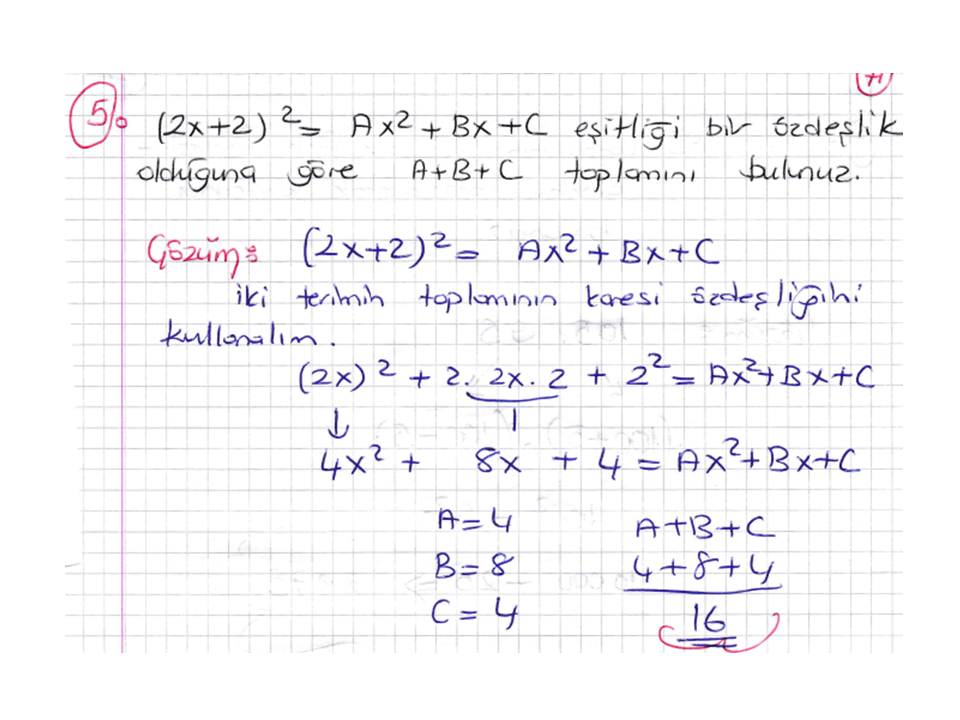 5. (2x+2)² = Ax² + Bx + C eşitliği bir özdeşlik
olduğuna göre A+B+C toplamını bulunuz.
Çözüm: (2x+2)² = Ax² + Bx + C
iki terimin toplamının karesi özdeşliğini
kullanalım.
(2x)² + 2. 2x. 2 + 2² = Ax² + Bx + C
↓
4x² + 8x + 4 = Ax² + Bx + C
A = 4
B = 8
C = 4
A+B+C
4+8+4
16